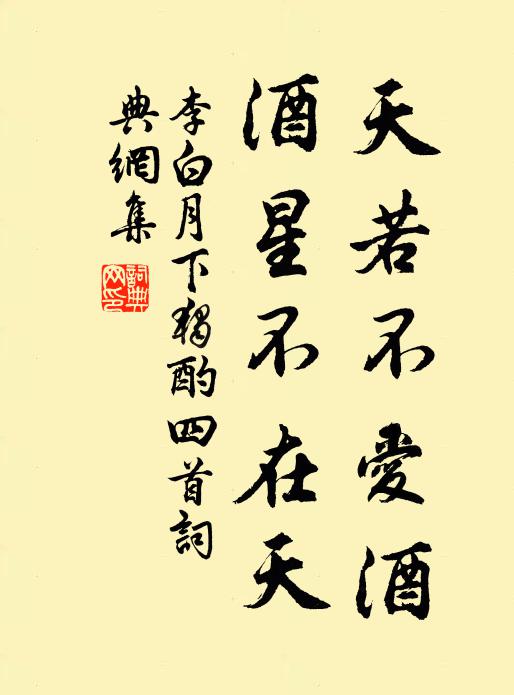 天若不愛酒
酒星不在天
李白月下獨酌四首詞
典網集
詞典网印